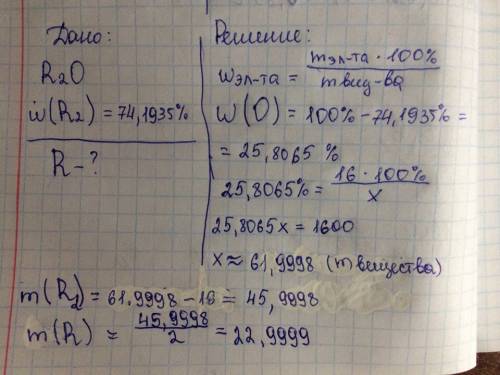 Дано:
R₂O
w(R₂) = 74,1935%
R - ?
Решение:
wэл-та = mэл-та · 100% / mвид-ва
w(O) = 100% - 74,1935% =
= 25,8065 %
25,8065% = 16 · 100% / x
25,8065x = 1600
x ≈ 61,9998 (m вещества)
m(R₂) = 61,9998 - 16 = 45,9998
m(R) ≈ 45,9998 / 2 = 22,9999